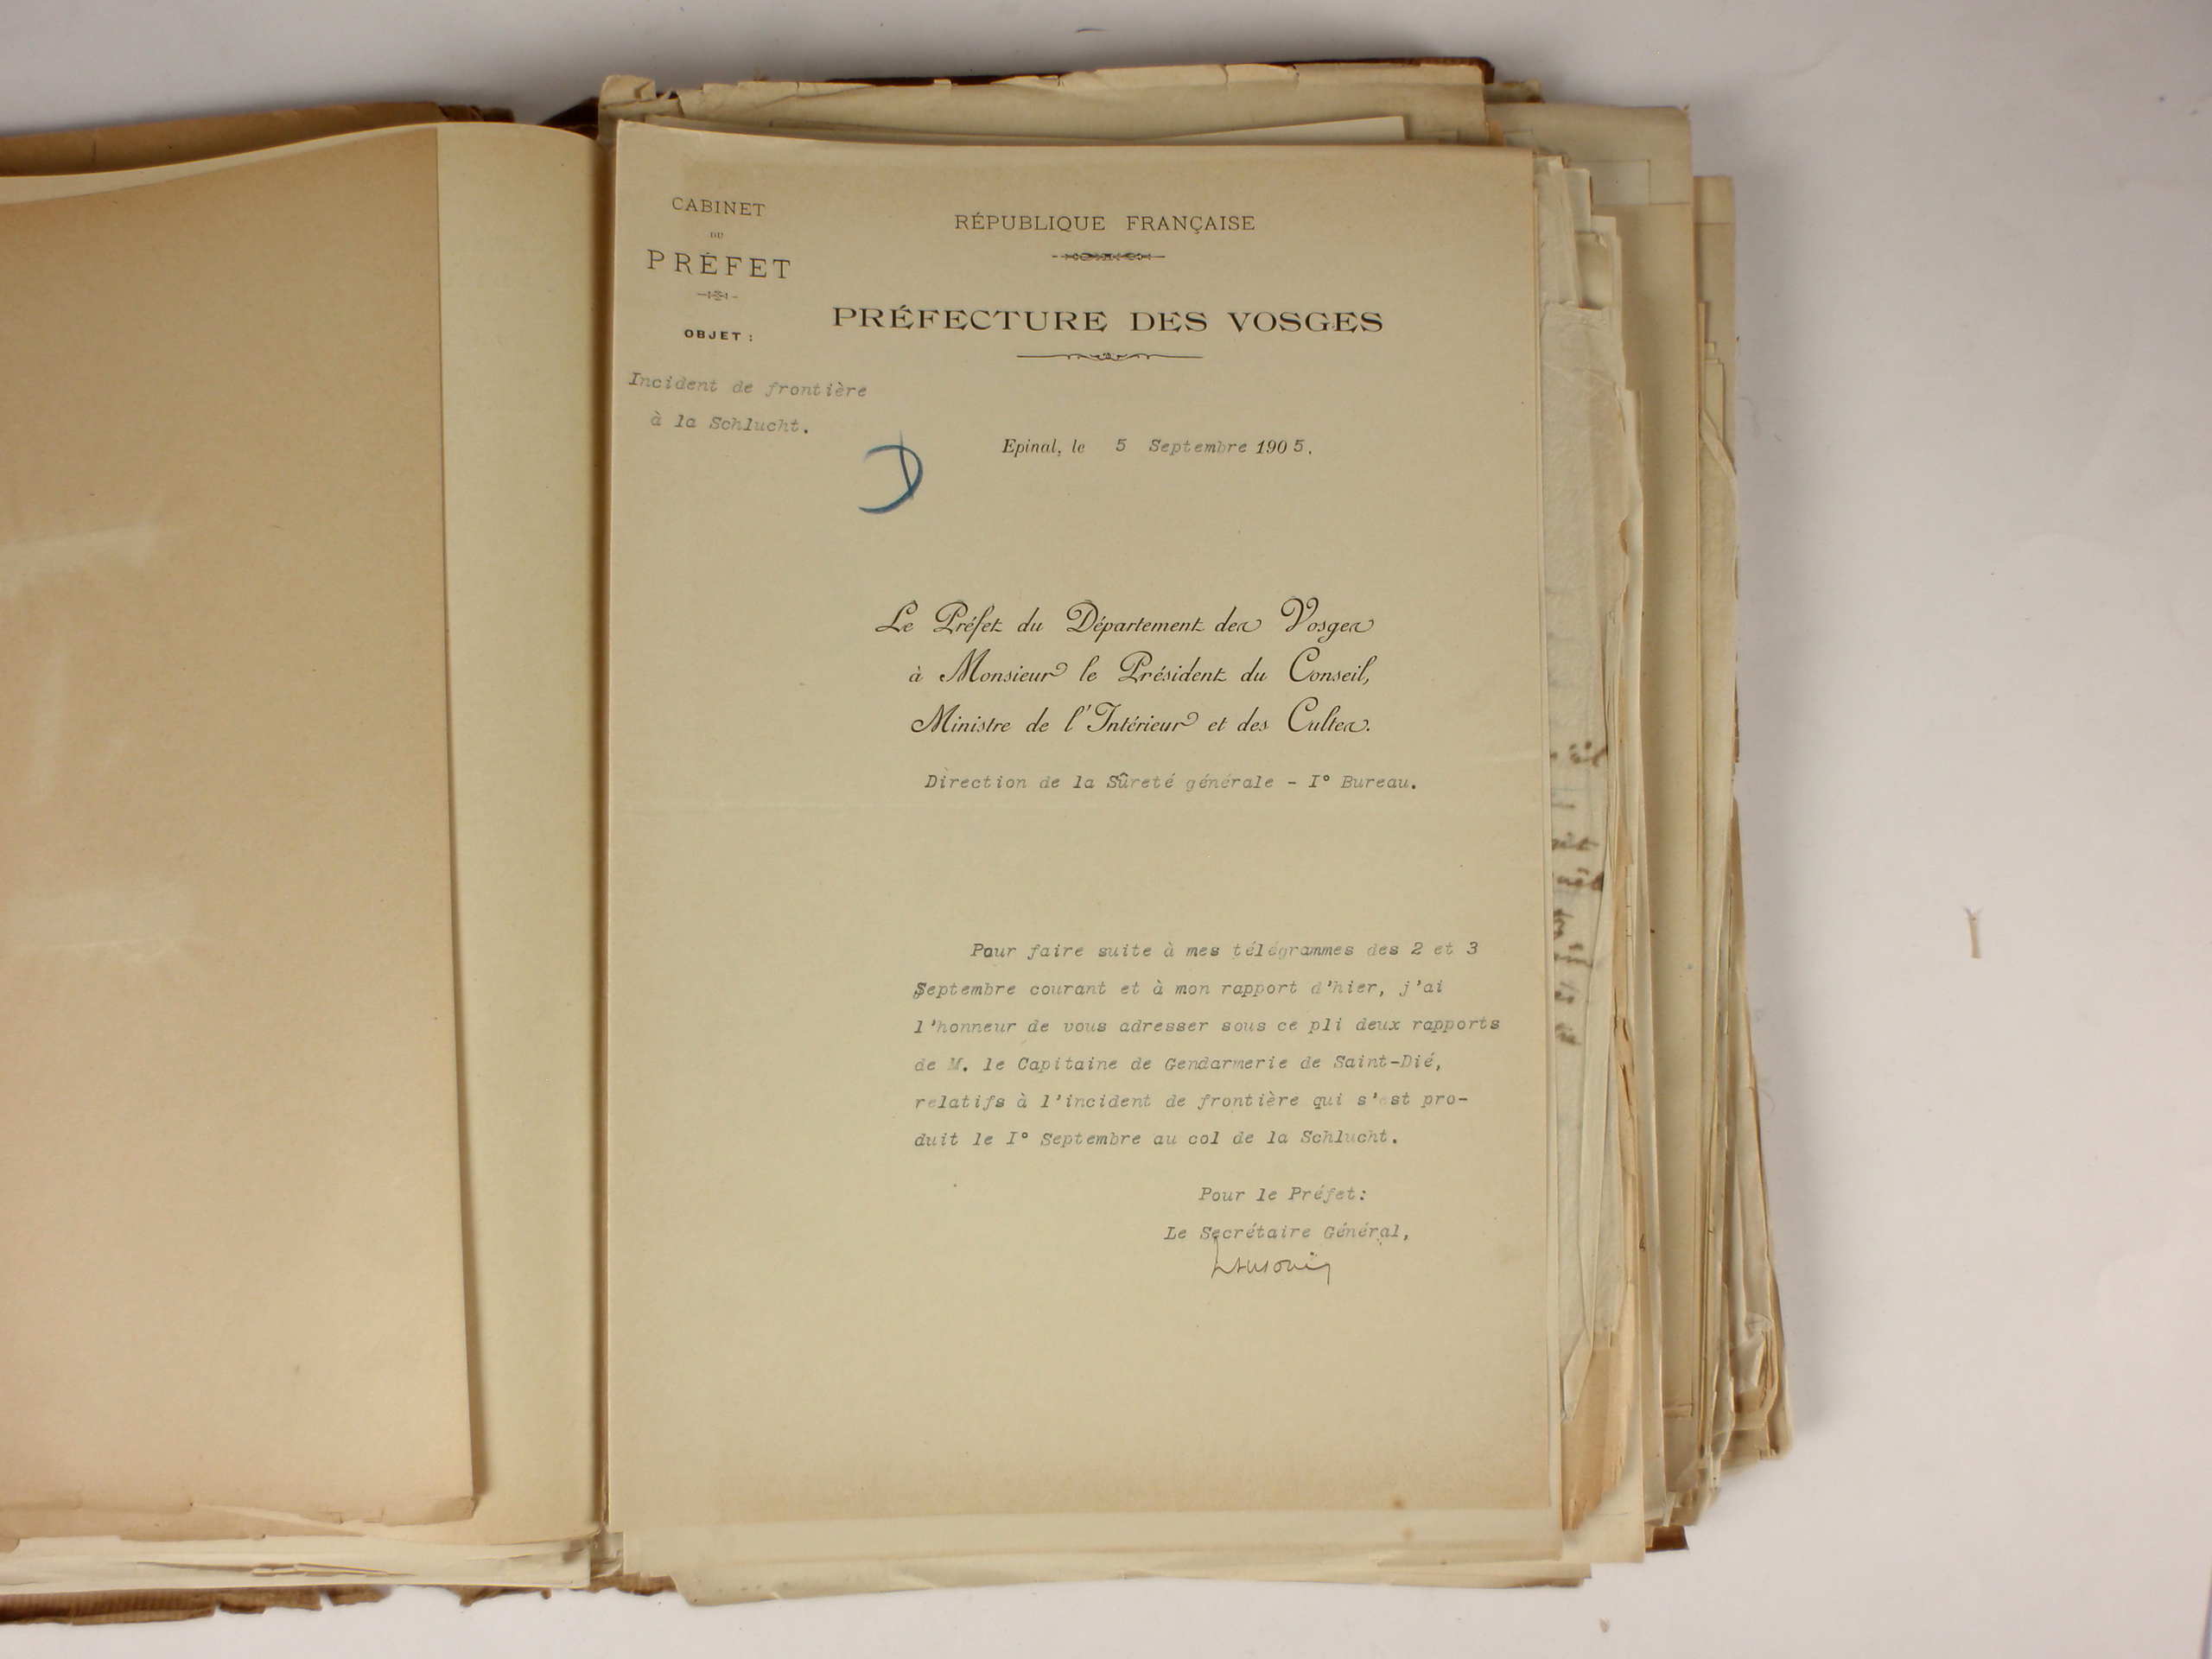 CABINET
DU
PRÉFET
OBJET :
Incident de frontière
à la Schlucht.
RÉPUBLIQUE FRANÇAISE
PRÉFECTURE DES VOSGES
Epinal, le 5 Septembre 1905.
Le Préfet du Département des Vosges
à Monsieur le Président du Conseil,
Ministre de l'Intérieur et des Cultes.
Direction de la Sûreté générale - I° Bureau.
Pour faire suite à mes télégrammes des 2 et 3
Septembre courant et à mon rapport d'hier, j'ai
l'honneur de vous adresser sous ce pli deux rapports
de M. le Capitaine de Gendarmerie de Saint-Dié,
relatifs à l'incident de frontière qui s'est pro-
duit le I° Septembre au col de la Schlucht.
Pour le Préfet:
Le Secrétaire Général,